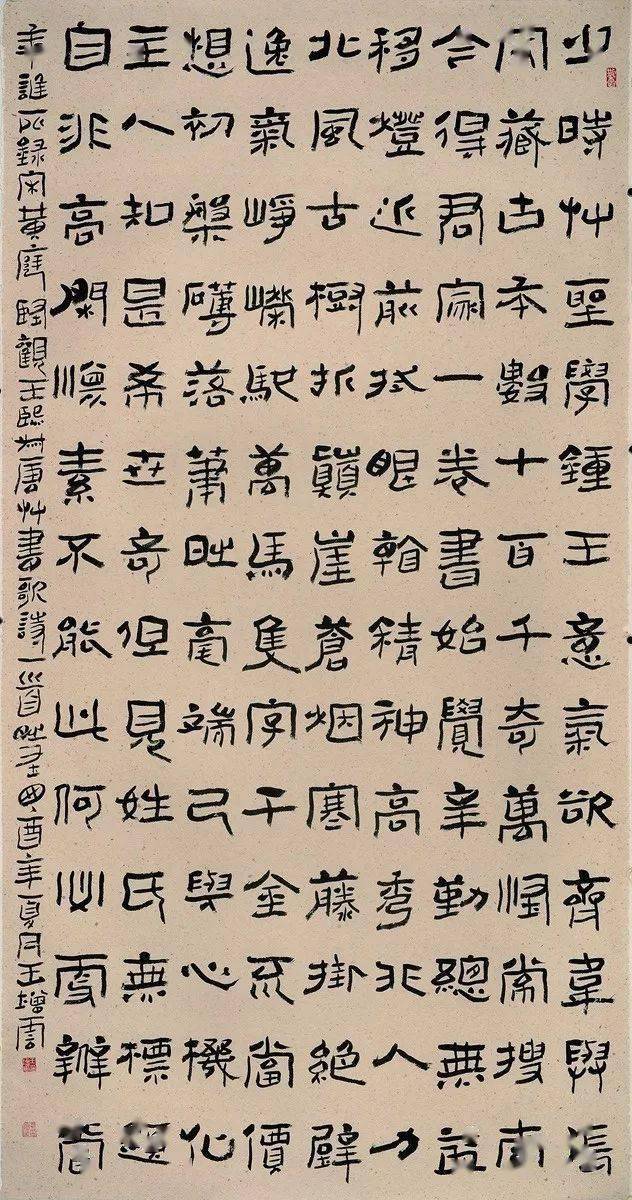 少時艸聖學鍾王意氣欲齊韋與張
藏古本數十百千奇萬怪常搜
今得君家一卷書始覺辛勤總無益
移燈近前拭眼看精神高秀非人力
北風古樹折巔崖蒼烟寒藤掛絕壁
逸氣崢嶸馳萬馬隻字千金不當價
想初槃礴落筆時毫端已與心機化
主人知是希世奇但見姓氏無標題
自非高閑懷素不能此何必更辨當
年誰所錄宋黃庭堅觀王熙叔唐艸書歌詩一首時在酉年夏月王增